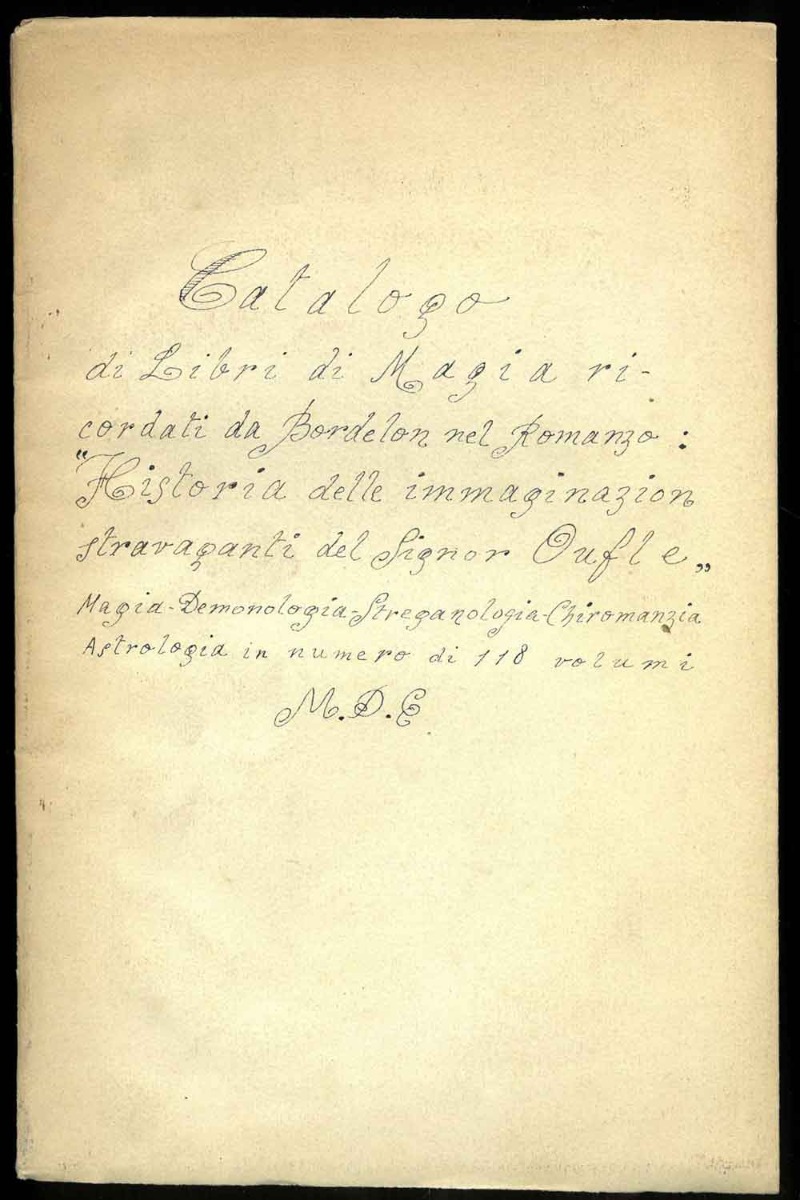 Catalogo
di Libri di Magia ri-
cordati da Bordelon nel Romanzo :
"Historia delle immaginazion
stravaganti del Signor Oufle „
Magia-Demonologia-Streganologia-Chiromanzia
Astrologia in numero di 118 volumi
M.D.E